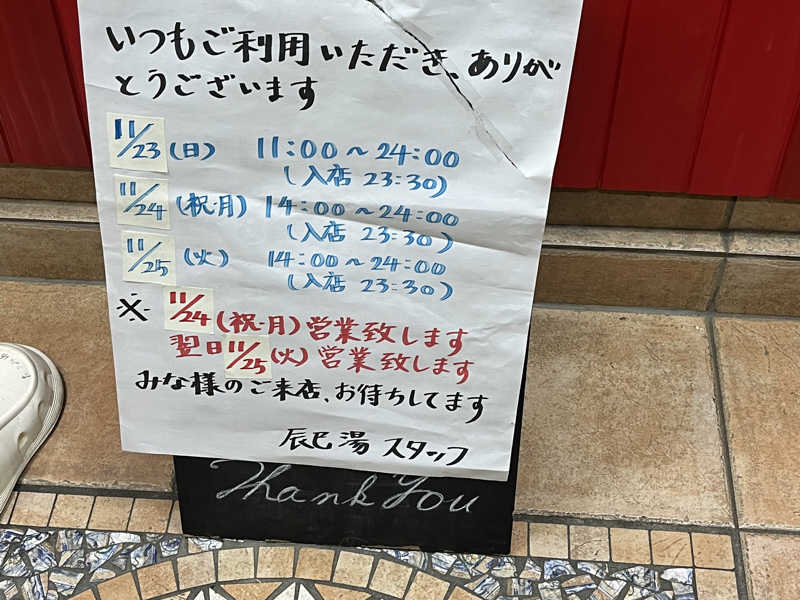 いつもご利用いただき、ありが
とうございます
11/23(日) 11:00～24:00
(入店 23:30)
11/24(祝·月) 14:00～24:00
(入店 23:30)
11/25(火) 14:00～24:00
(入店 23:30)
※11/24(祝·月)営業致します
翌日11/25(火)営業致します
みな様のご来店、お待ちしてます
辰巳湯 スタッフ
Thank You